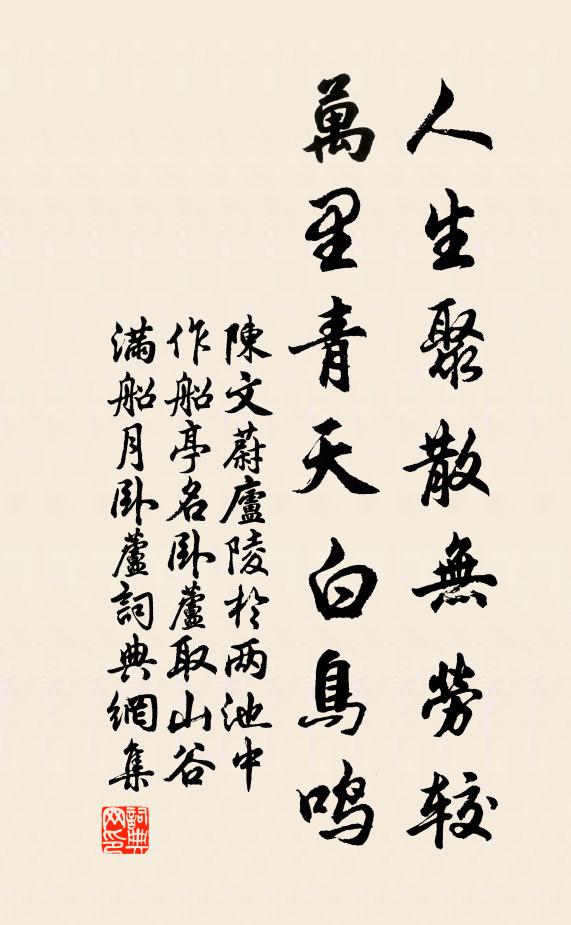 人生聚散無勞較
萬里青天白鳥鳴
陳文蔚廬陵於两池中
作船亭名卧蘆取山谷
滿船月卧蘆詞典網集
詞典网印